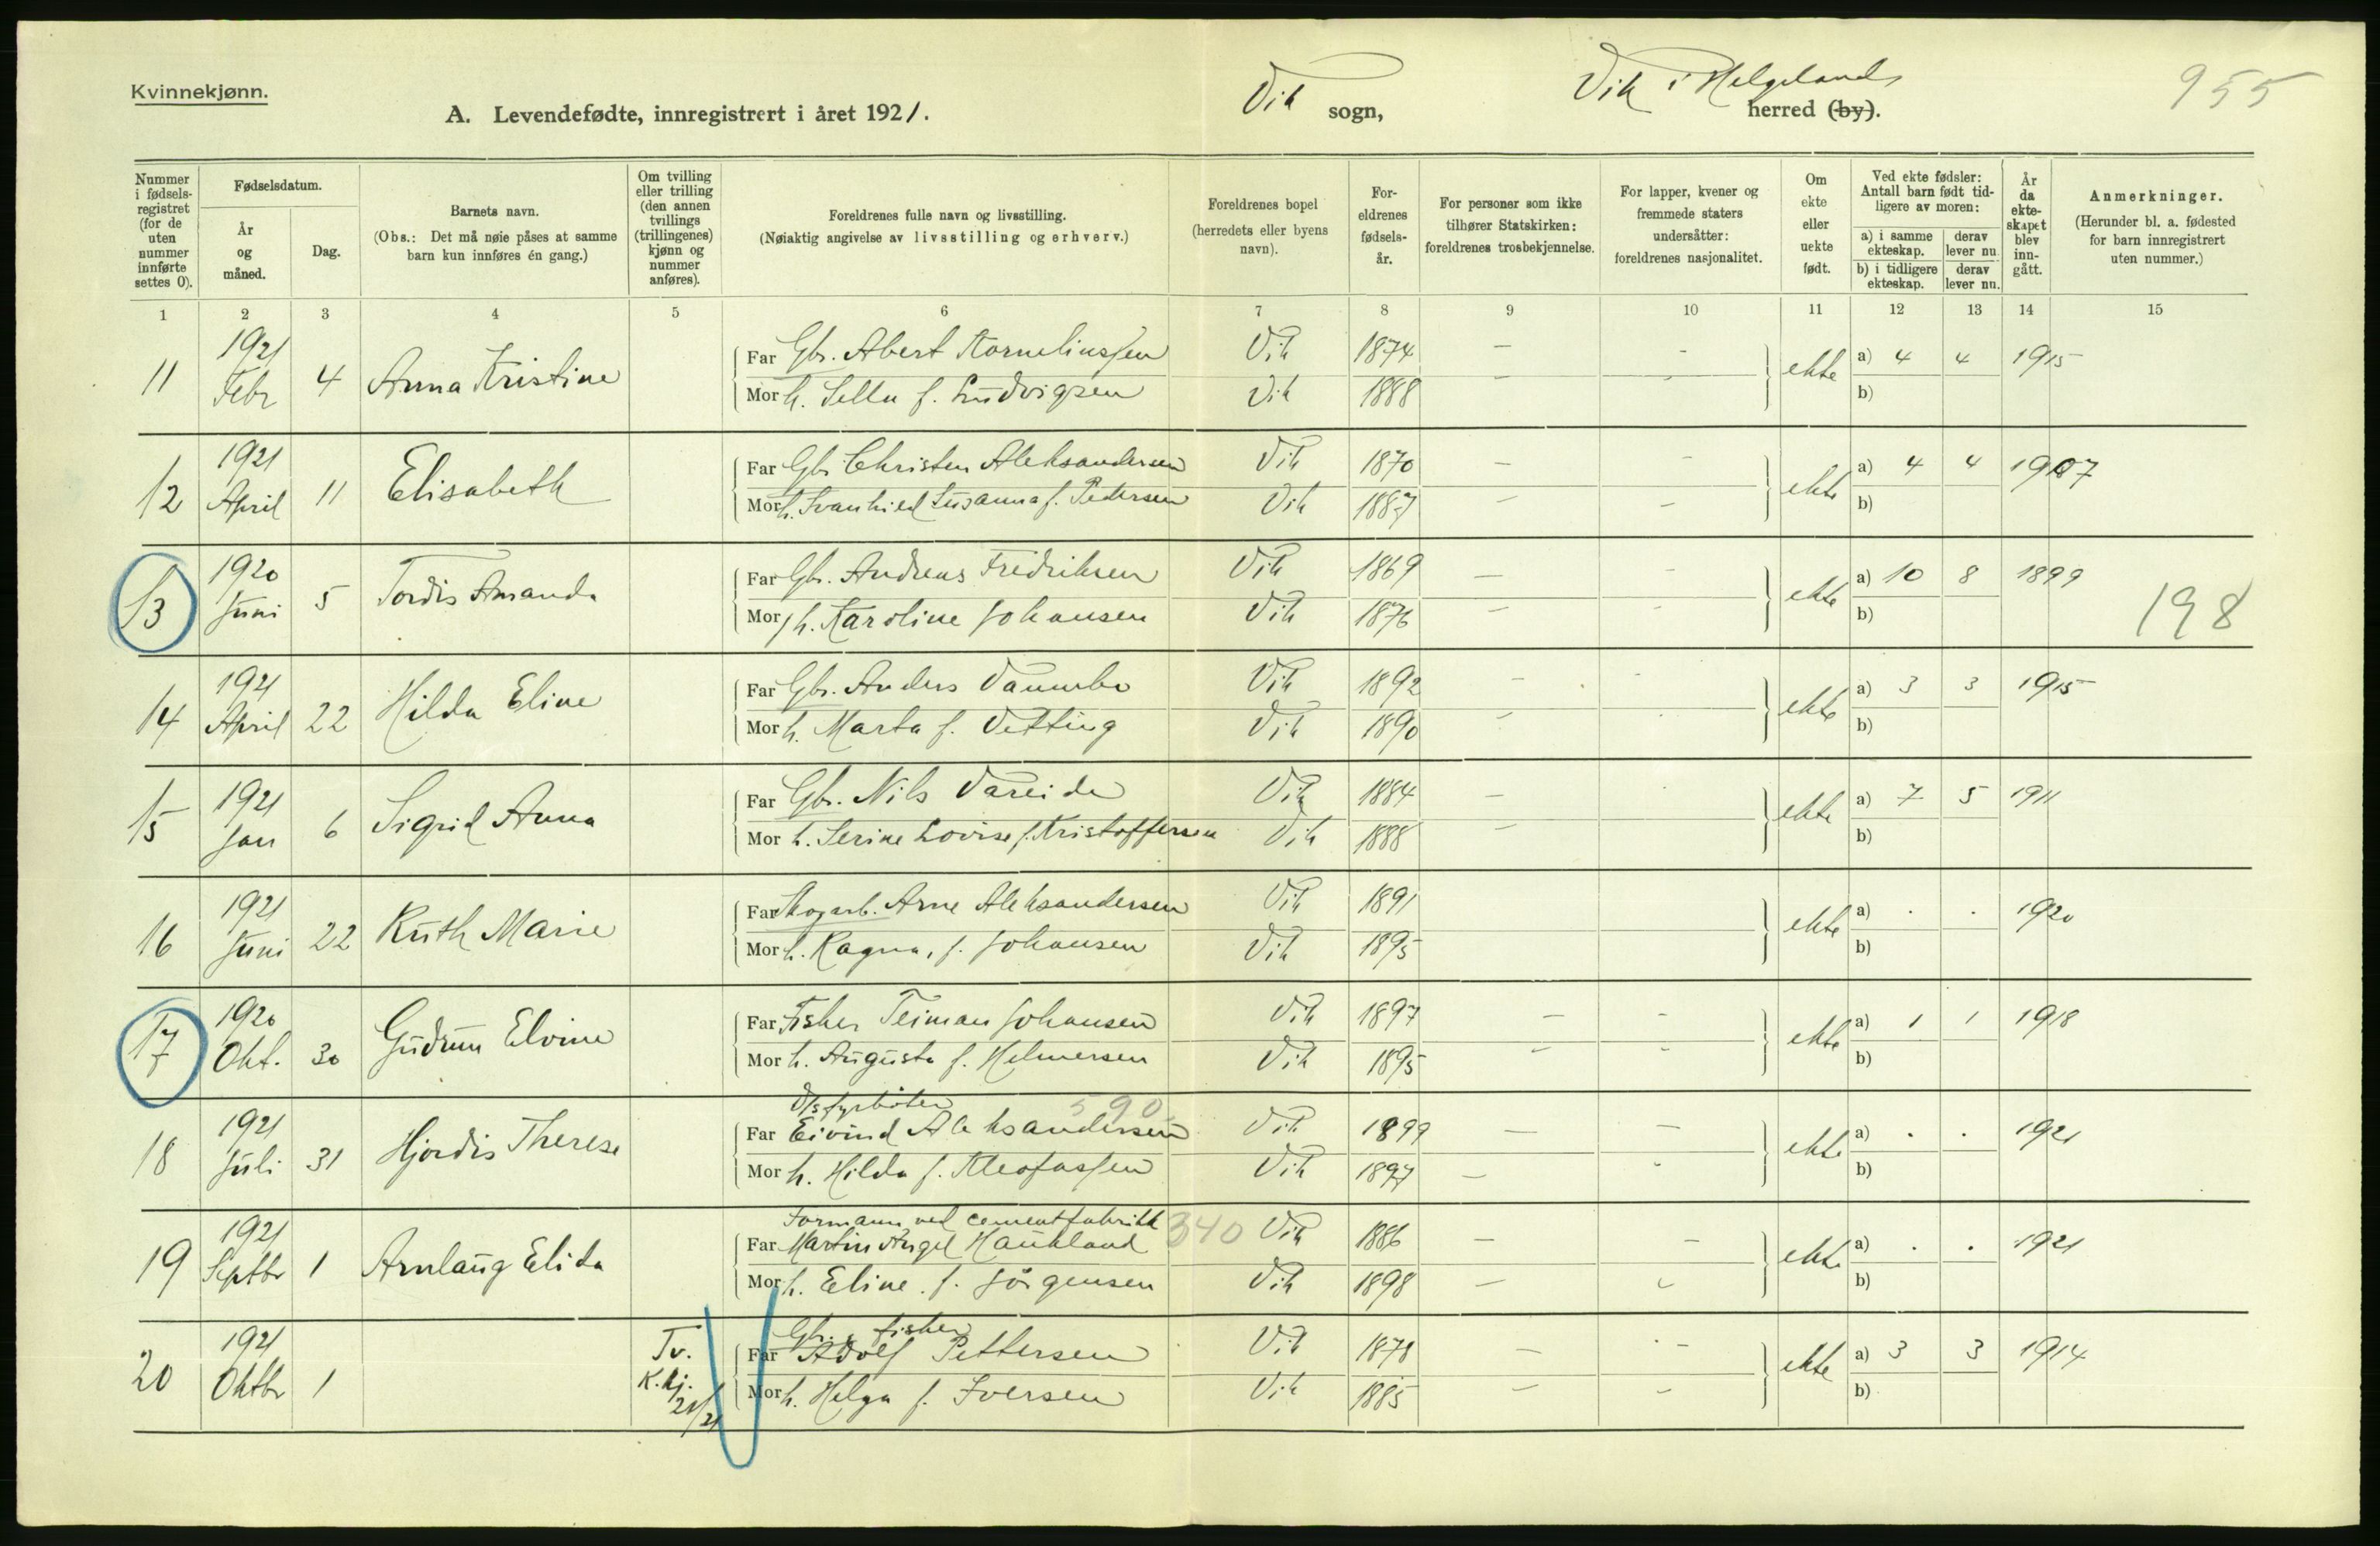 Kvinnekjønn.
A. Levendefødte, innregistrert i året 1921.
Vik sogn,
Vik i Helgeland herred (by).
955
Nummer i fødsels-registret (for de uten nummer innførte settes 0).
Fødselsdatum.
År og måned.
Dag.
Barnets navn.
(Obs.: Det må nøie påses at samme barn kun innføres én gang.)
Om tvilling eller trilling (den annen tvillings (trillingenes) kjønn og nummer anføres).
Foreldrenes fulle navn og livsstilling.
(Nøiaktig angivelse av livsstilling og erhverv.)
Foreldrenes bopel (herredets eller byens navn).
For-eldrenes fødsels-år.
For personer som ikke tilhører Statskirken: foreldrenes trosbekjennelse.
For lapper, kvener og fremmede staters undersåtter: foreldrenes nasjonalitet.
Om ekte eller uekte født.
Ved ekte fødsler: Antall barn født tid-ligere av moren:
a) i samme ekteskap. derav lever nu
b) i tidligere ekteskap. derav lever nu.
År da ekte-skapet blev inn-gått.
Anmerkninger.
(Herunder bl. a. fødested for barn innregistrert uten nummer.)
1 2 3 4 5 6 7 8 9 10 11 12 13 14 15
11 1921 Febr 4 Anna Kristine Far Gbr. Abert Korneliussen Vik 1874 — - ekte a) 4 4 1915
Mor h. Sella f. Ludvigsen Vik 1888 — - b)
12 1921 April 11 Elisabeth Far Gbr Christen Aleksandersen Vik 1870 — - ekte a) 4 4 1907
Mor h. Svanhied Susanna f. Pedersen Vik 1887 — - b)
13 1920 Juni 5 Tordis Amanda Far Gbr. Andreas Fredriksen Vik 1869 — - ekte a) 10 8 1899
Mor h. Karoline Johansen Vik 1876 — - b)
198
14 1921 April 22 Hilda Eline Far Gbr. Anders Vaumbo Vik 1892 - - ekte a) 3 3 1915
Mor h. Marta f. Vetting Vik 1890 - - b)
15 1921 Jan 6 Sigrid Anna Far Gbr. Nils Vareide Vik 1884 — - ekte a) 7 5 1911
Mor h. Serine Lovise f. Kristoffersen Vik 1888 — b)
16 1921 Juni 22 Ruth Marie Far Skogarb. Arne Aleksandersen Vik 1891 ekte a) . . 1920
Mor h. Ragna, f. Johansen Vik 1895 b)
17 1920 Okt. 30 Gudrun Elvine Far Fisker Teiman Johansen Vik 1897 — - ekte a) 1 1 1918
Mor h. Augusta f. Helmersen Vik 1895 — - b)
D/s fyrbøter 590
18 1921 Juli 31 Hjørdis Therese Far Eivind Aleksandersen Vik 1899 — — ekte a) . . 1921
Mor h. Hilda f. Kleofassen Vik 1897 — - b)
Formann ved cementfabrikk 340
19 1921 Septbr 1 Arnlaug Elida Far Martin Angel Haukland Vik 1886 — — ekte a) . . 1921
Mor h. Eline f. Jörgensen Vik 1898 — - b)
Gbr. & fisker
20 1921 Oktbr 1 Tv. Far Adolf Pettersen Vik 1878 — - ekte a) 3 3 1914
K.kj. 21/21 Mor h. Helga f. Iversen Vik 1885 — - b)